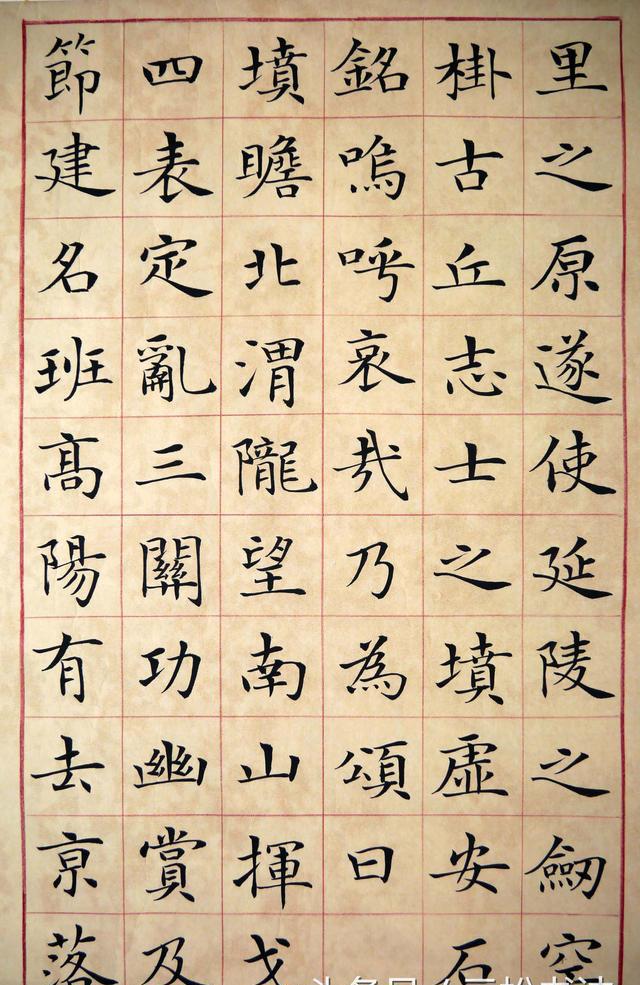 里之原遂使延陵之劒空
掛古丘志士之墳虛安石
銘嗚呼哀哉乃為頌曰
墳瞻北渭隴望南山揮戈
四表定亂三關功幽賞及
節建名班高陽有去京落